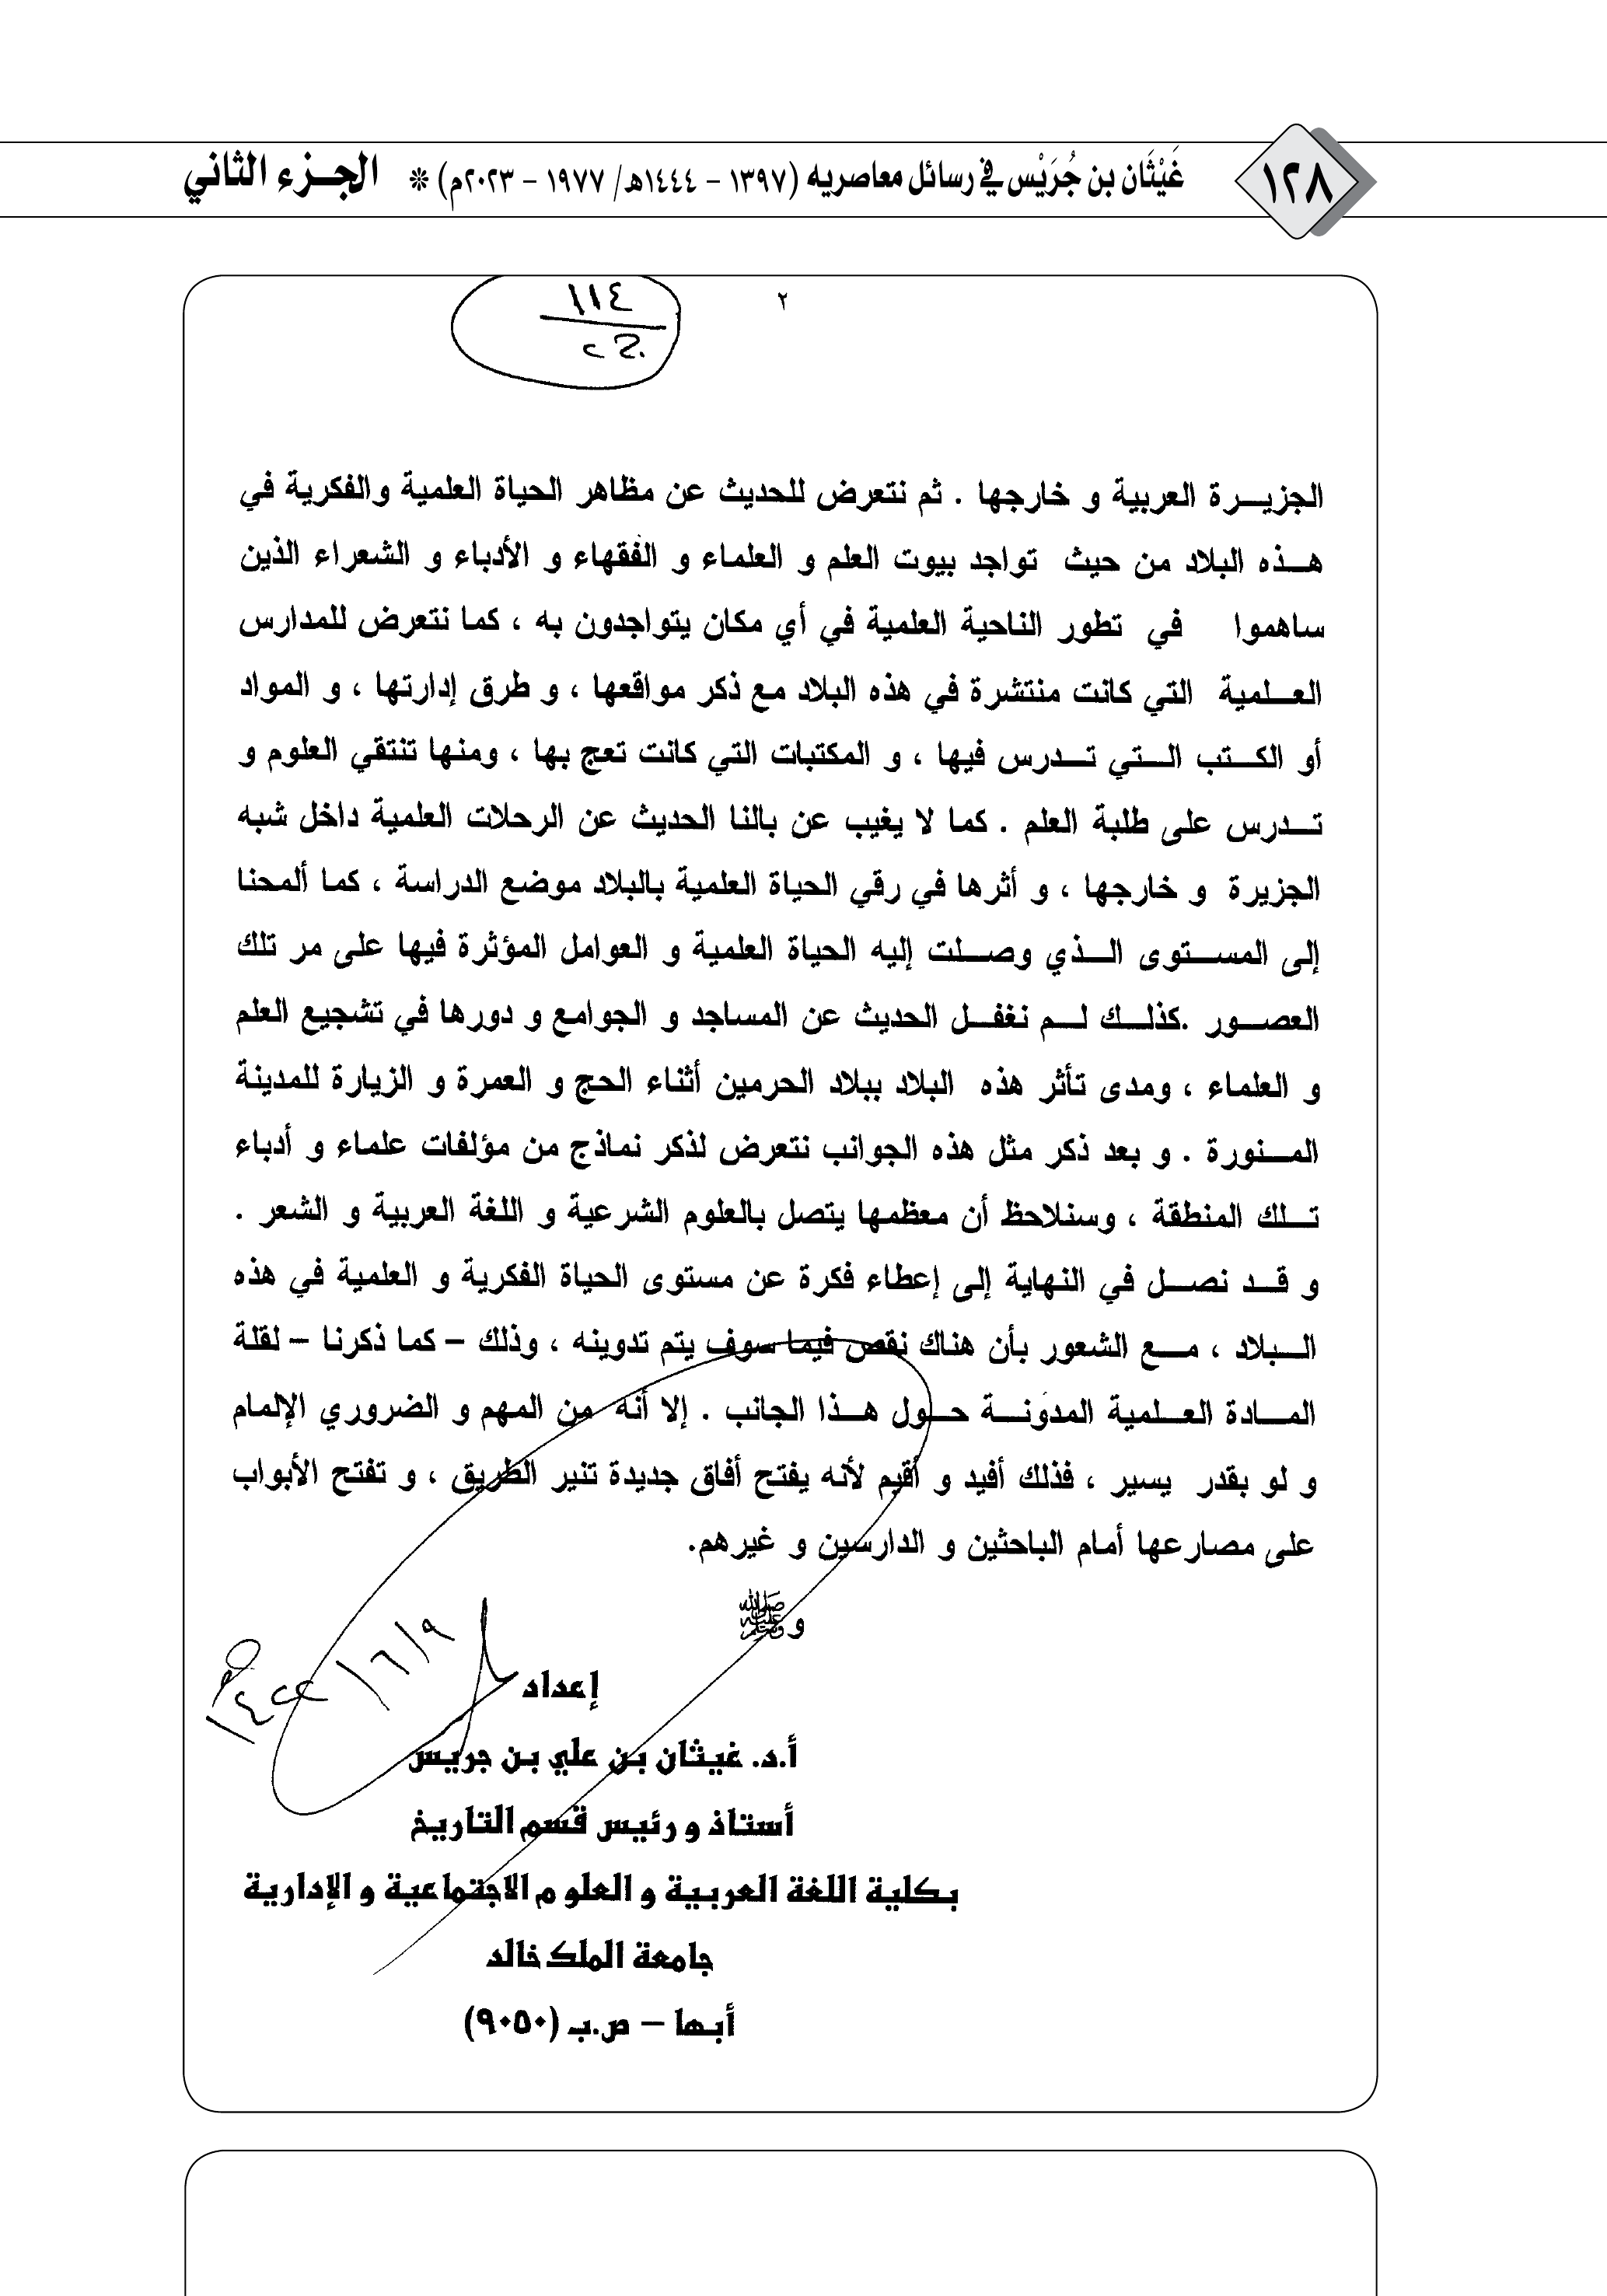 ١٢٨
غَيْثَان بن جُرَيْس في رسائل معاصريه (١٣٩٧ – ١٤٤٤هـ/ ١٩٧٧ – ٢٠٢٣م) ❊ الجزء الثاني
٢
١١٤
الجزيرة العربية و خارجها . ثم نتعرض للحديث عن مظاهر الحياة العلمية والفكرية في
هذه البلاد من حيث تواجد بيوت العلم و العلماء و الفقهاء و الأدباء و الشعراء الذين
ساهموا في تطور الناحية العلمية في أي مكان يتواجدون به ، كما نتعرض للمدارس
العلمية التي كانت منتشرة في هذه البلاد مع ذكر مواقعها ، و طرق إدارتها ، و المواد
أو الكتب التي تدرس فيها ، و المكتبات التي كانت تعج بها ، ومنها تنتقي العلوم و
تدرس على طلبة العلم . كما لا يغيب عن بالنا الحديث عن الرحلات العلمية داخل شبه
الجزيرة و خارجها ، و أثرها في رقي الحياة العلمية بالبلاد موضع الدراسة ، كما ألمحنا
إلى المستوى الذي وصلت إليه الحياة العلمية و العوامل المؤثرة فيها على مر تلك
العصور .كذلك لم نغفل الحديث عن المساجد و الجوامع و دورها في تشجيع العلم
و العلماء ، ومدى تأثر هذه البلاد ببلاد الحرمين أثناء الحج و العمرة و الزيارة للمدينة
المنورة . و بعد ذكر مثل هذه الجوانب نتعرض لذكر نماذج من مؤلفات علماء و أدباء
تلك المنطقة ، وسنلاحظ أن معظمها يتصل بالعلوم الشرعية و اللغة العربية و الشعر .
و قد نصل في النهاية إلى إعطاء فكرة عن مستوى الحياة الفكرية و العلمية في هذه
البلاد ، مع الشعور بأن هناك نقص فيما سوف يتم تدوينه ، وذلك – كما ذكرنا – لقلة
المادة العلمية المدوّنة حول هذا الجانب . إلا أنه من المهم و الضروري الإلمام
و لو بقدر يسير ، فذلك أفيد و أقيم لأنه يفتح أفاق جديدة تنير الطريق ، و تفتح الأبواب
على مصارعها أمام الباحثين و الدارسين و غيرهم.
و ﷺ
١/٦/٩
١٤٢٢هـ
إعداد
أ.د. غيثان بن علي بن جريس
أستاذ و رئيس قسم التاريخ
بكلية اللغة العربية و العلو م الاجتماعية و الإدارية
جامعة الملك خالد
أبها – ص.ب (٩٠٥٠)